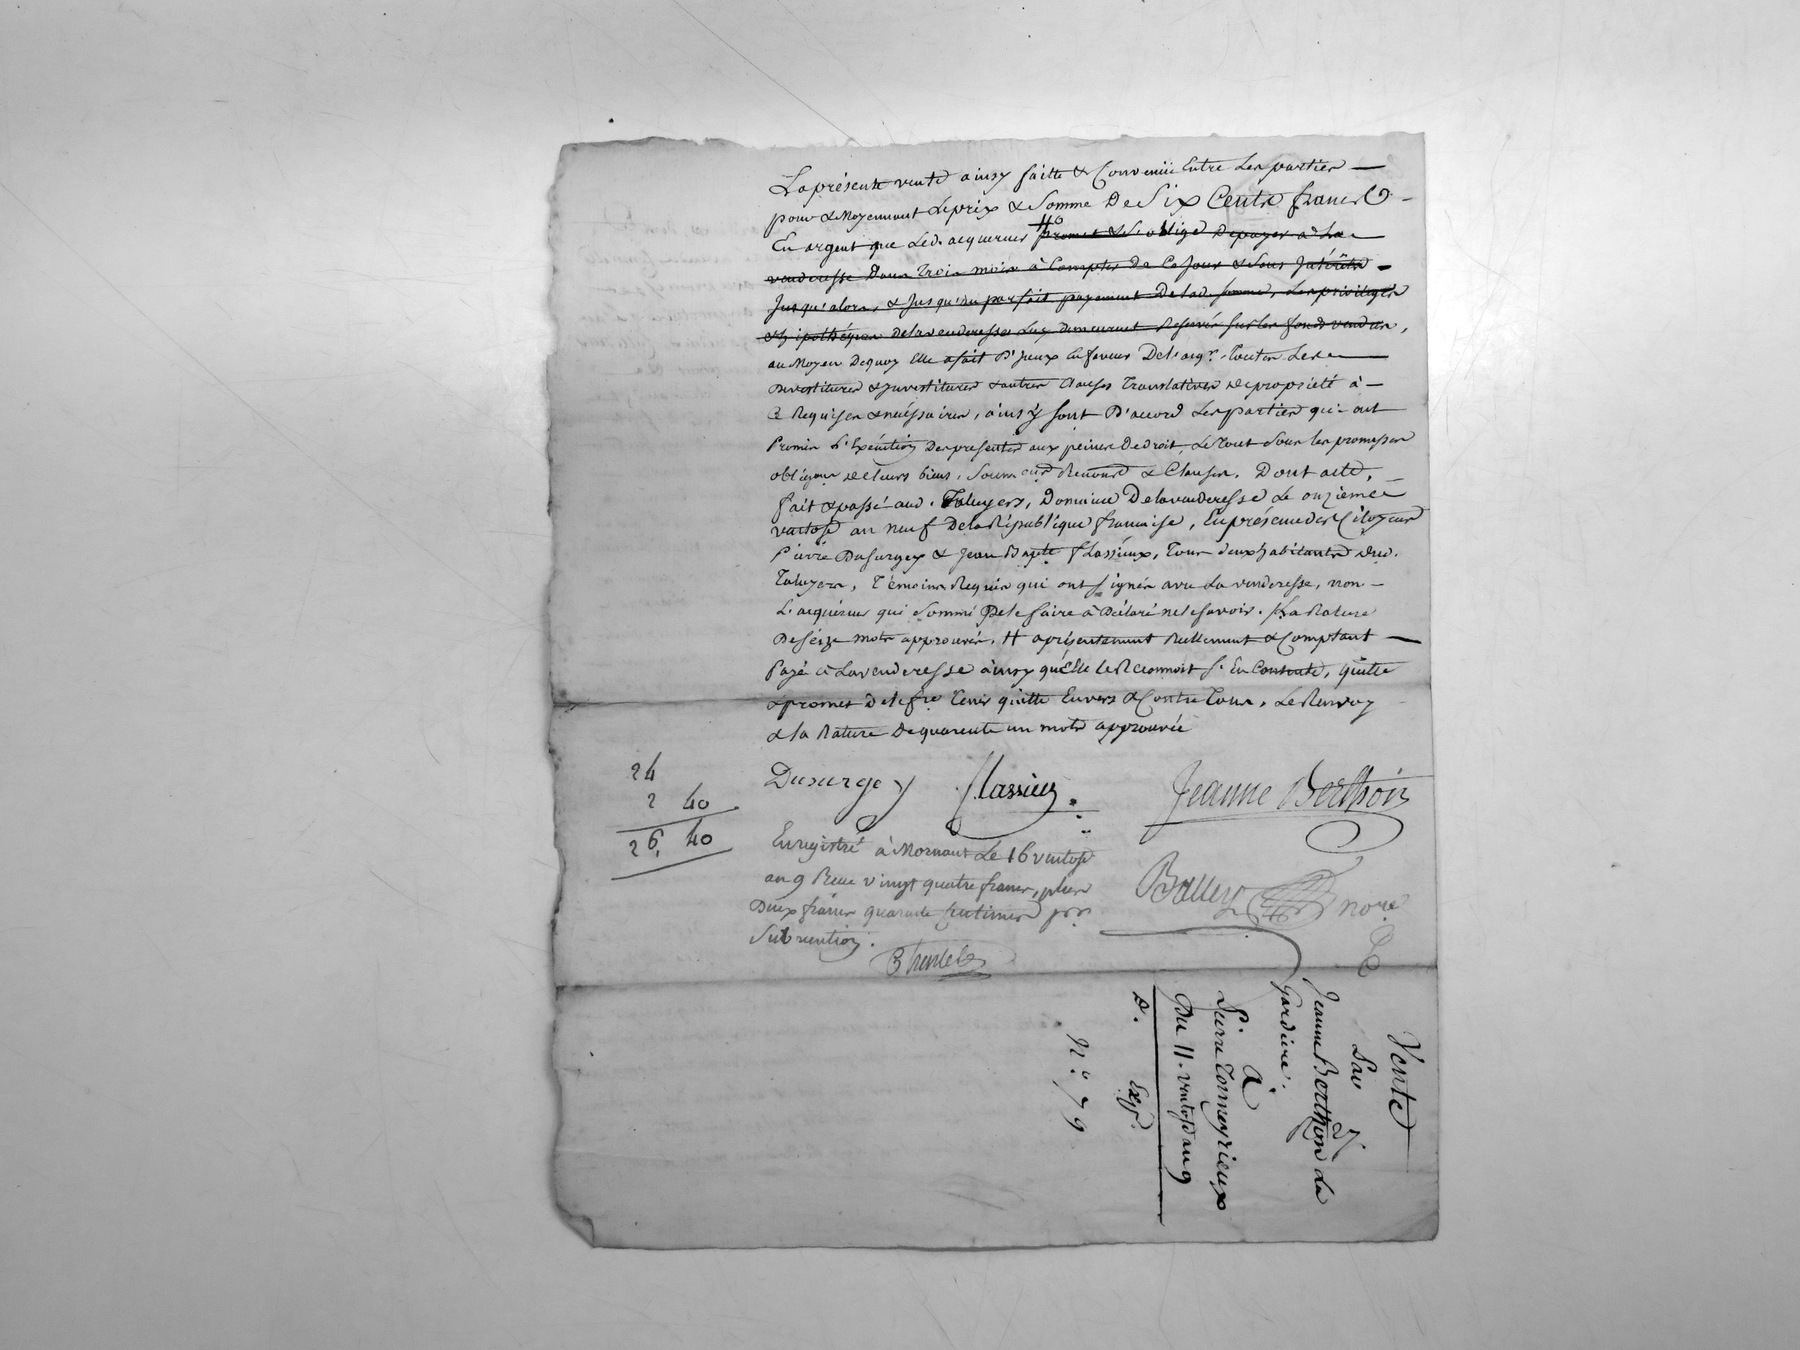 La présente vente ainsy faitte & Convenüe Entre Les parties
pour & Moyennant Leprix & Somme De Six Cents francs
En argent que Led. acquereur # promet & s'oblige Depayer a La
venderesse Dans Trois mois à Compter De Ce Jour & Sans Jntérêts
Jusqu'alors, & Jusqu'au parfait payement De lad. somme, Les privileges
& hipothéques delavenderesse Luy demeurent Reservés sur les fonds vendus,
au Moyen Dequoy Elle afait D'Jceux En faveur De l'acqr. Toutes Les
Devestitures & Jnvestitures & autres Clauses Translatives depropriété à
Ce Requises & nécéssaires, ainsÿ sont D'accord Les parties qui ont
Promis L'Exécution Des presentes aux peines De droit, Le Tout Sous les promesses
obligaons de Leurs biens, Soumons Renonce & Clauses. Dont acte,
fait & passé aud. Taluyers, Domicile De lavenderesse Le onzieme
ventose an neuf De la République francaise, En présence des Citoyens
Pierre Dusurgey & Jean Bapte. flassieux, Tous deux habitants dud.
Taluyers, Témoins Requis qui ont signés avec La venderesse, non
L'acquéreur qui Sommé De le faire a Déclaré ne le savoir. La Rature
De Seize mots approuvée. # aprésentement Réellement & Comptant
Payé à Lavenderesse ainsy qu'Elle le Reconnoit s'En Contente, quitte
& promet De le fre. Tenir quitte Envers & Contre Tous, Le Renvoy
& la Rature De quarente un mots approuvée
Dusurgey flassieux Jeanne Berthoin
24
2 40
26, 40
Enregistré à Mornant Le 16 ventose
an 9 Reçu vingt quatre francs, plus
Deux francs quarante Centimes pr.
Subvention.
Balley nore.
Vente
Par
Jeanne Berthoin La
Gardiere.
à
Pierre Tonneyrieux
Du 11. ventose an 9
D. Exp.
N.° 79